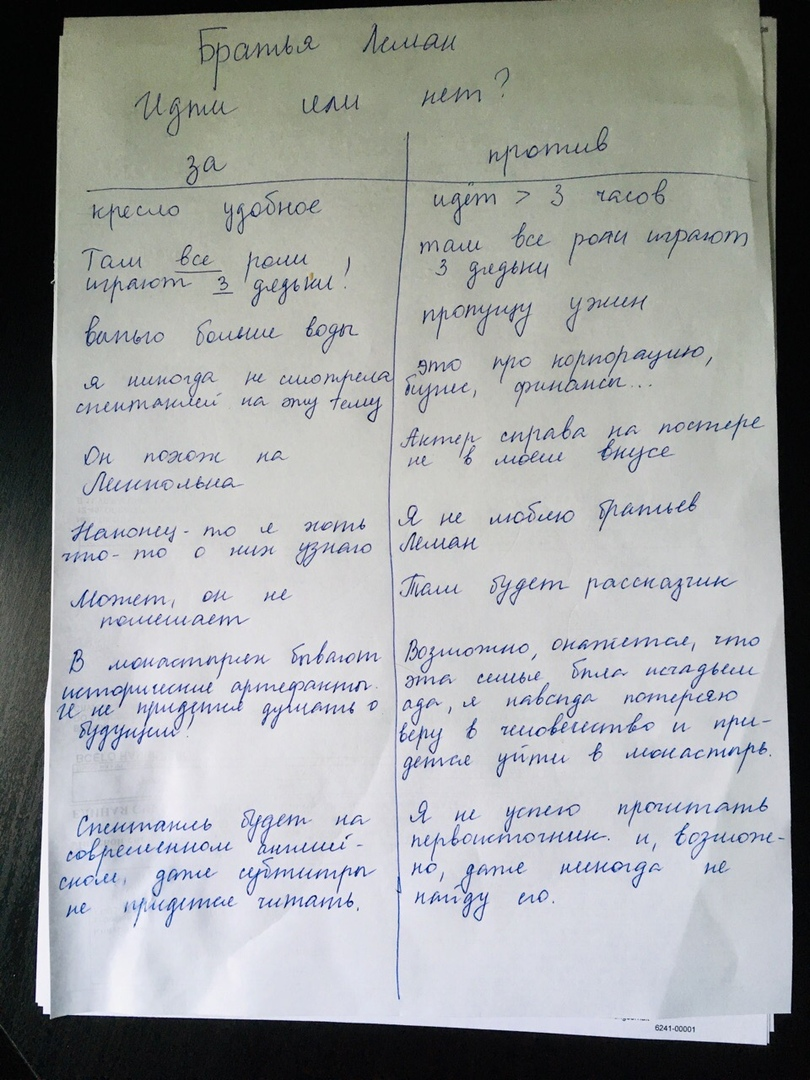 Братья Леман
Идти или нет?
за
кресло удобное
Там все роли
играют 3 дядьки!
выпью больше воды
я никогда не смотрела
спектаклей на эту тему
Он похож на
Линкольна
Наконец-то я хоть
что-то о них узнаю
Может, он не
помешает
В монастырях бывают
исторические артефакты.
И не придется думать о
будущем!
Спектакль будет на
современном англий-
ском, даже субтитры
не придется читать.
против
идёт > 3 часов
там все роли играют
3 дядьки
пропущу ужин
это про корпорацию,
бизнес, финансы...
Актер справа на постере
не в моем вкусе
Я не люблю братьев
Леман
Там будет рассказчик
Возможно, окажется, что
эта семья была исчадьем
ада, я навсегда потеряю
веру в человечество и при-
дется уйти в монастырь.
Я не успею прочитать
первоисточник. и, возмож-
но, даже никогда не
найду его.
6241-00001